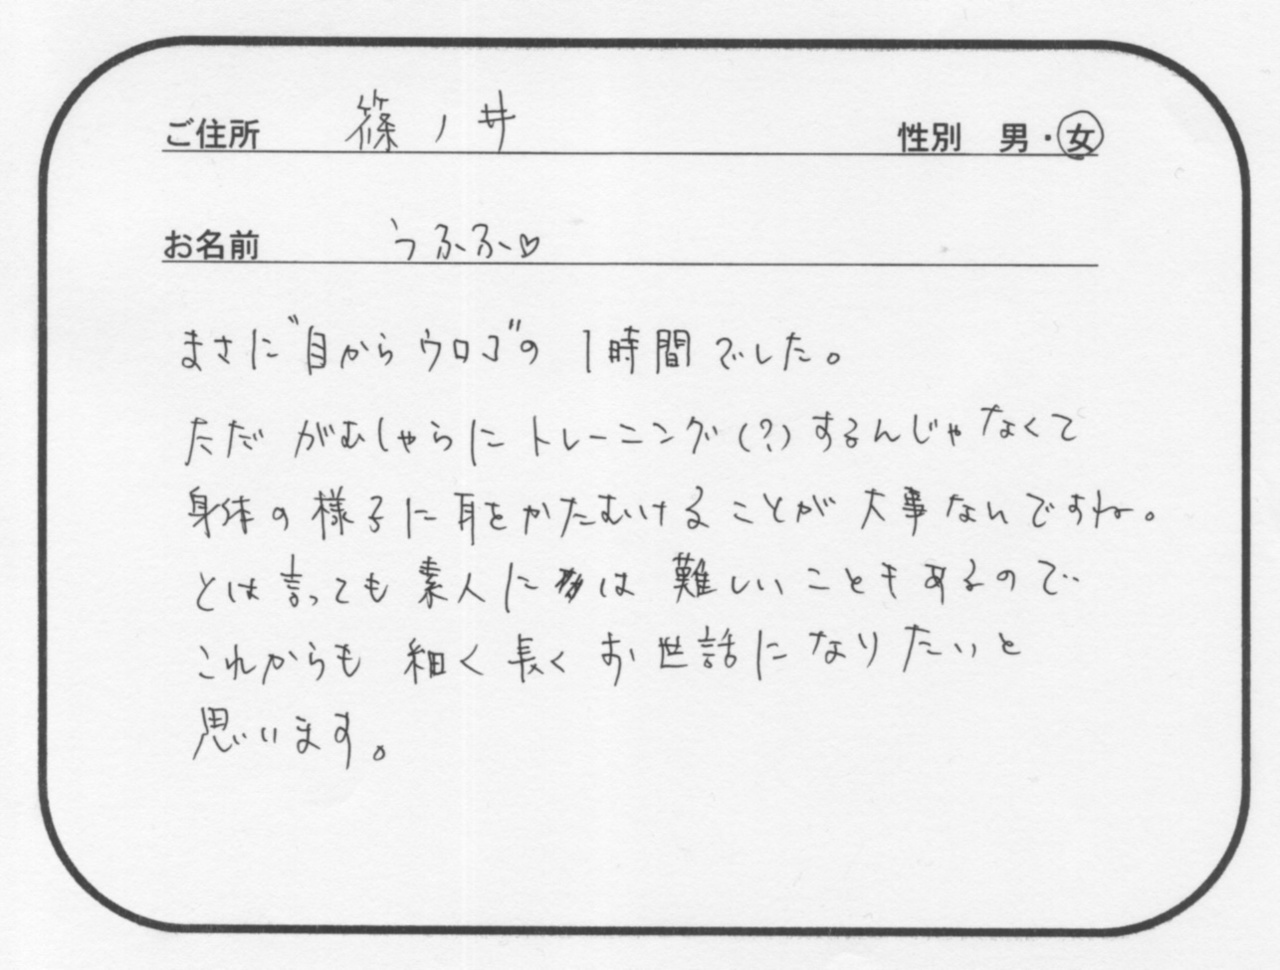 ご住所 篠ノ井 性別 男・女
お名前 うふふ♡
まさに"目からウロコ"の 1時間でした。
ただ がむしゃらに トレーニング(?)するんじゃなくて
身体の様子に耳をかたむけることが 大事なんですね。
とは言っても 素人には 難しいことも あるので
これからも 細く長く お世話になりたいと
思います。